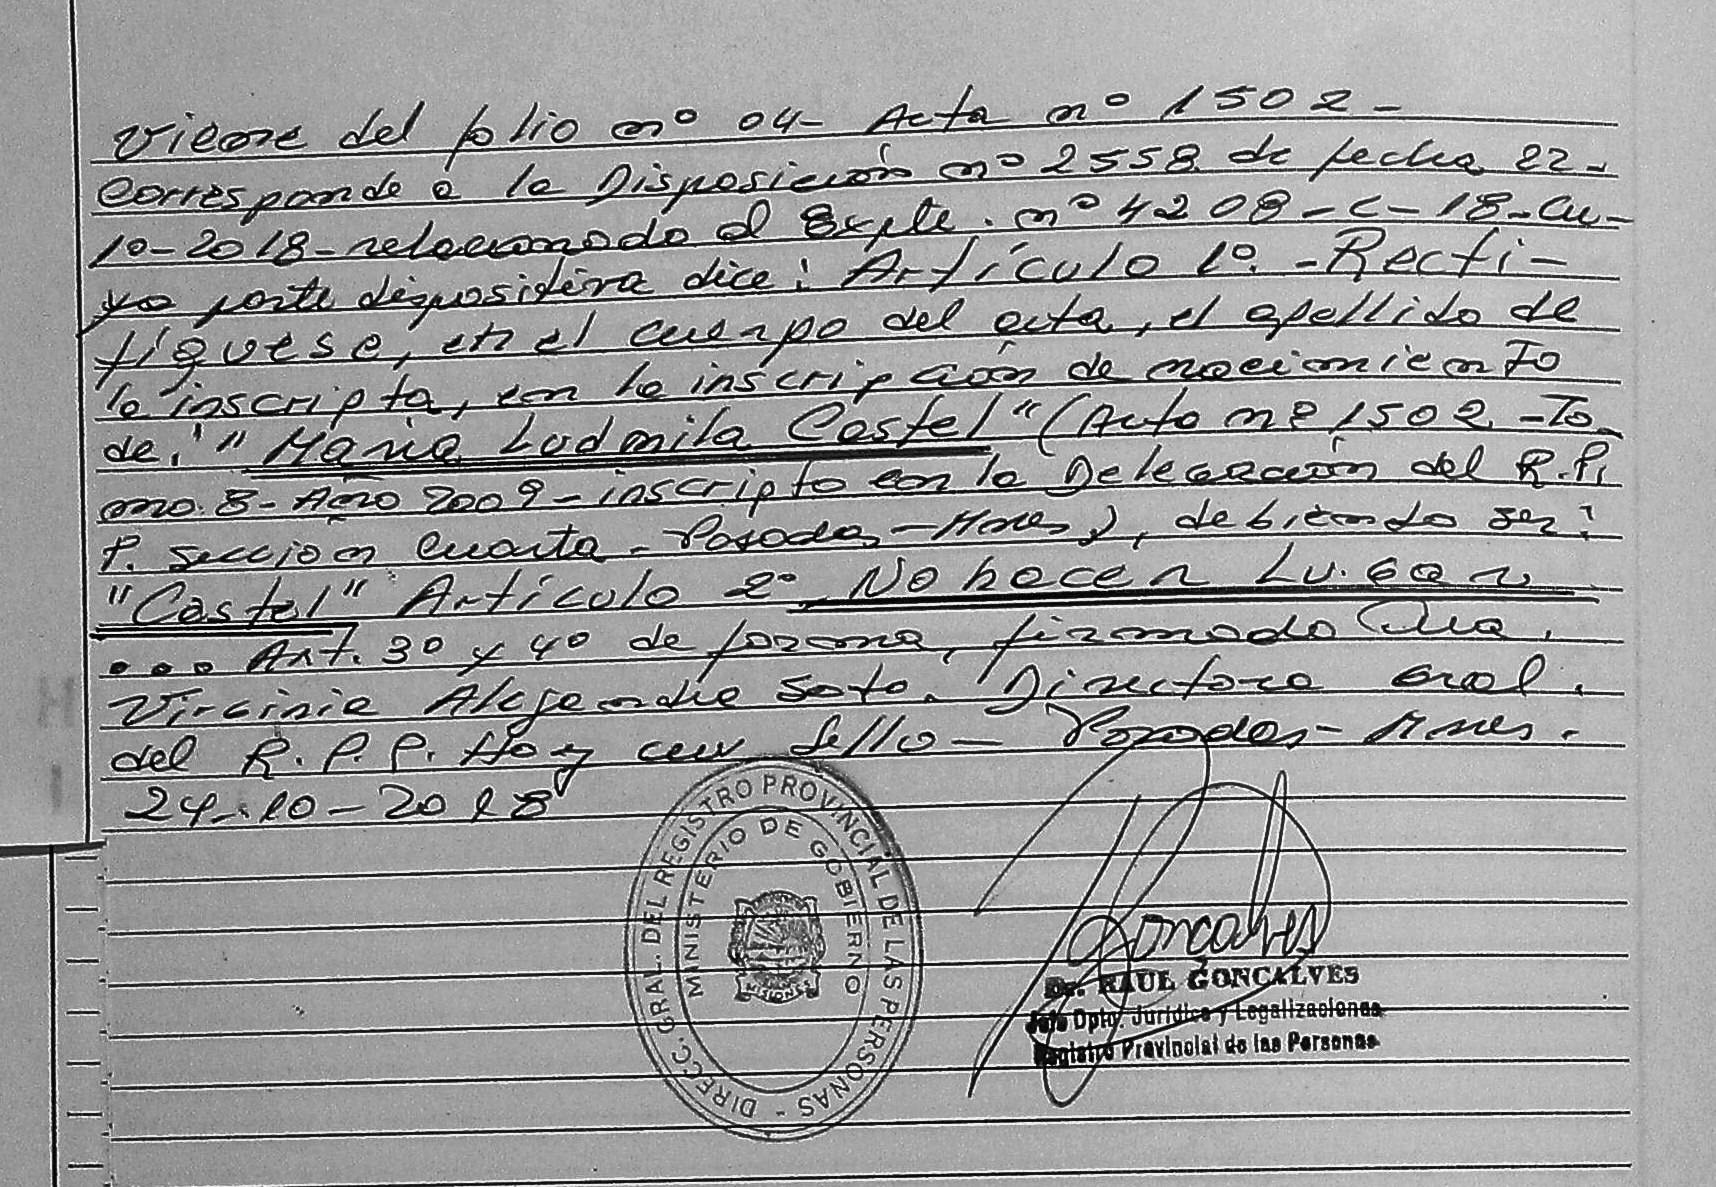 Viene del folio nº 04- Acta nº 1502-
Corresponde a la Disposición nº 2558 de fecha 22-
10-2018-relacionado al Expte. nº 4208-C-18-Cu-
ya parte dispositiva dice: Artículo 1º.-Recti-
fíquese, en el cuerpo del acta, el apellido de
la inscripta, en la inscripción de nacimiento
de: "María Ludmila Costel" (Acta nº 1502-To-
mo.8-Año 2009-inscripto en la Delegación del R.P.
P. sección Cuarta-Posadas-Mnes), debiendo ser:
"Castel" Artículo 2º No hacer Lugar
... Art. 3º y 4º de forma, firmado Dra.
Virginia Alejandra Soto. Directora Gral.
del R.P.P. Hay un sello- Posadas-Mnes.
24-10-2018
DIREC. GRAL. DEL REGISTRO PROVINCIAL DE LAS PERSONAS -
MINISTERIO DE GOBIERNO
MISIONES
Goncalves
Dr. RAUL GONCALVES
Jefe Dpto. Jurídico y Legalizaciones
Registro Provincial de las Personas